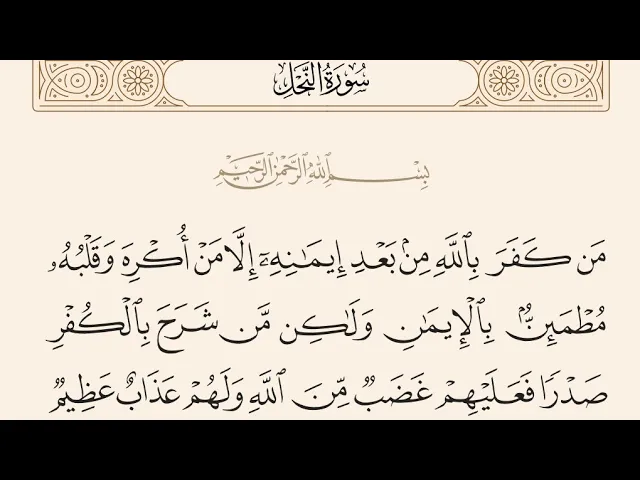 سُورَةُ النَّحْلِ
بِسْمِ اللَّهِ الرَّحْمَٰنِ الرَّحِيمِ
مَن كَفَرَ بِاللَّهِ مِنۢ بَعْدِ إِيمَـٰنِهِۦٓ إِلَّا مَنْ أُكْرِهَ وَقَلْبُهُۥ
مُطْمَئِنٌّۢ بِالْإِيمَـٰنِ وَلَـٰكِن مَّن شَرَحَ بِالْكُفْرِ
صَدْرًا فَعَلَيْهِمْ غَضَبٌ مِّنَ اللَّهِ وَلَهُمْ عَذَابٌ عَظِيمٌ